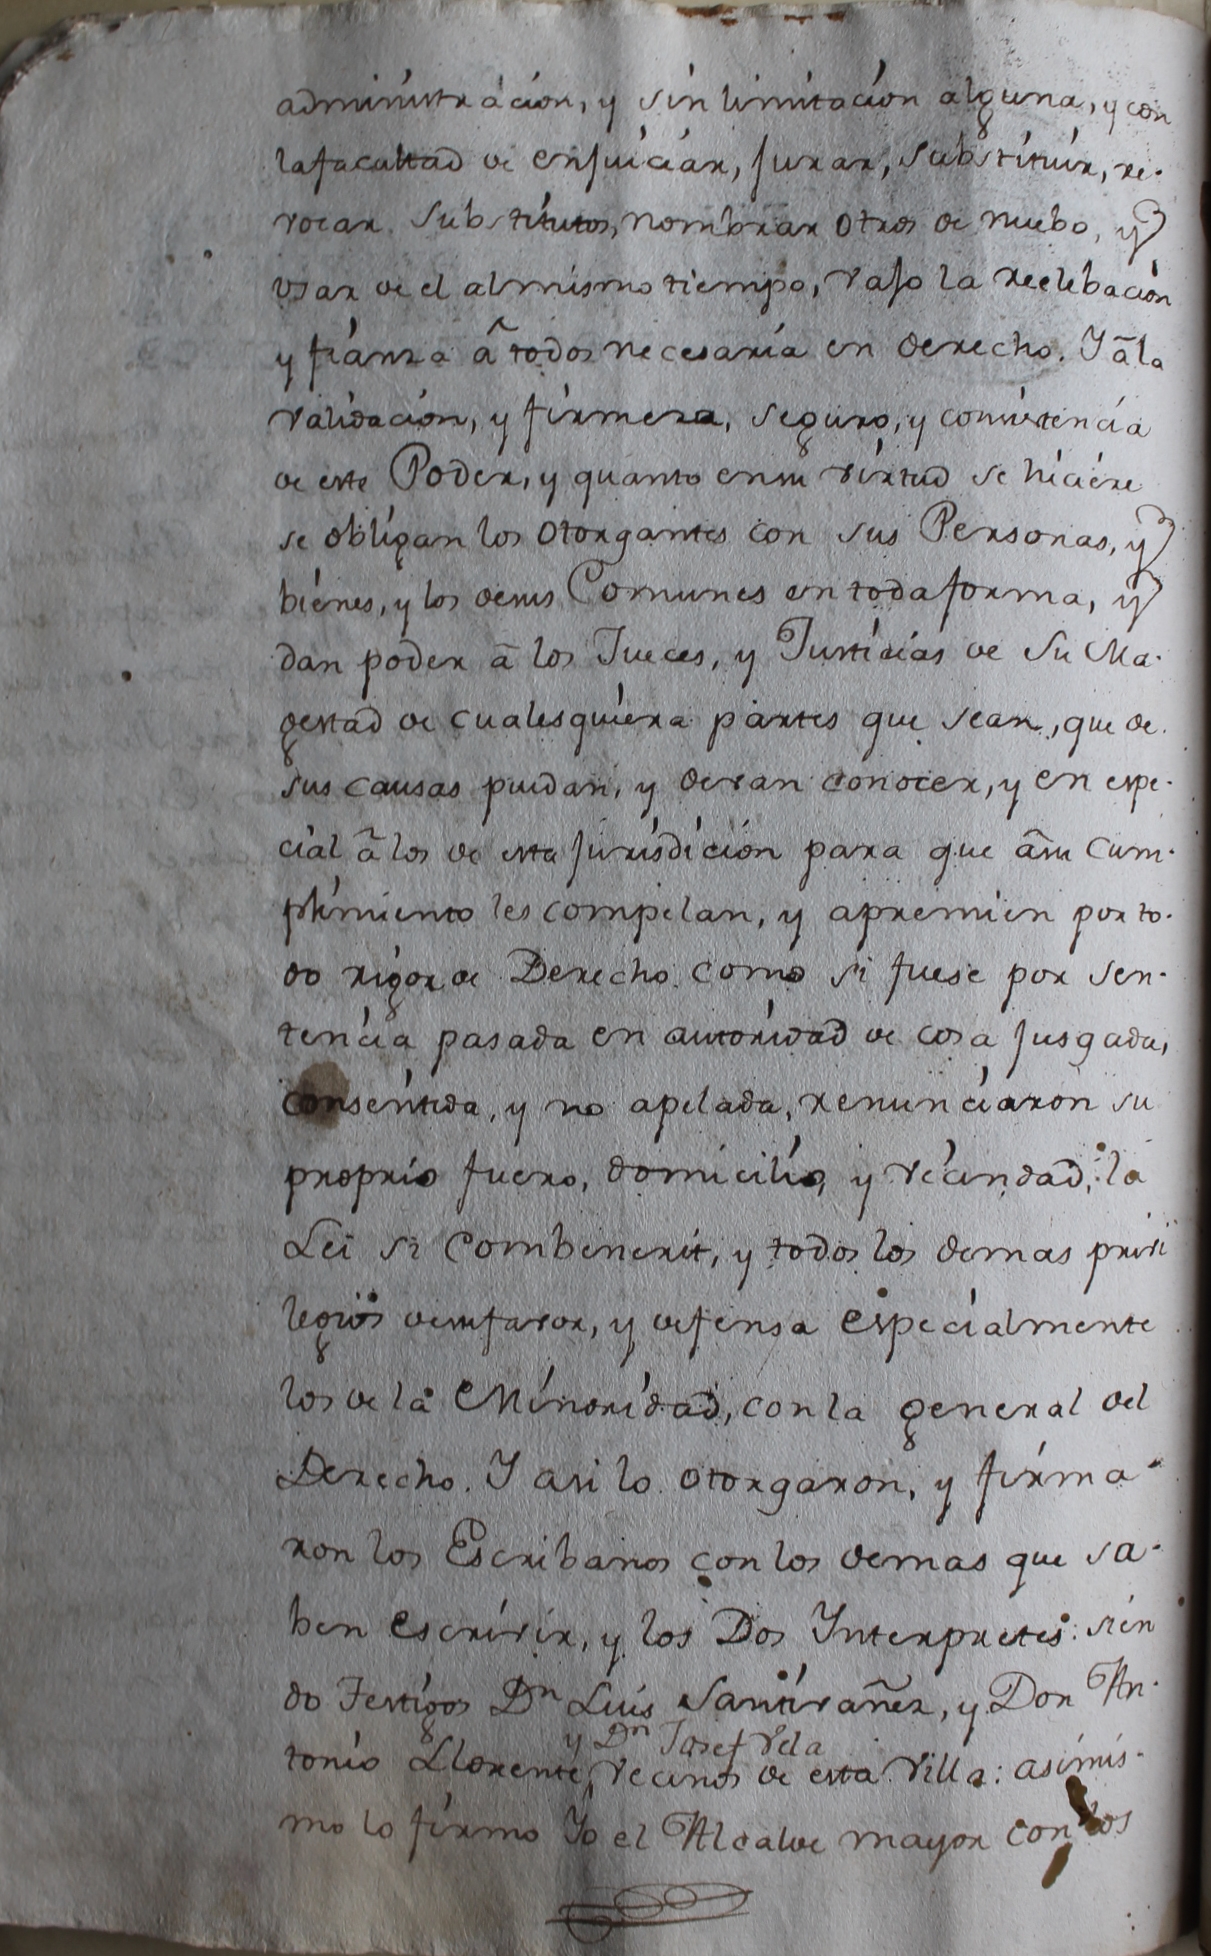 administracion, y sin limitacion alguna, y con
la facultad de enjuiciar, jurar, substituir, re-
vocar substitutos, nombrar otros de nuebo, y
usar de el al mismo tiempo, vajo la reelebacion
y fianza â todos necesaria en derecho. Y â la
validacion, y firmeza, seguro, y consistencia
de este Poder, y quanto en su virtud se hiciere
se obligan los otorgantes con sus Personas, y
bienes, y los de sus Comunes en toda forma, y
dan poder â los Jueces, y Justicias de Su Ma-
gestad de cualesquiera partes que sean, que de
sus causas puedan, y devan conocer, y en espe-
cial â los de esta jurisdicion para que â su cum-
plimiento les compelan, y apremien por to-
do rigor de Derecho como si fuese por sen-
tencia pasada en autoridad de cosa jusgada,
consentida, y no apelada, renunciaron su
proprio fuero, domicilio, y vecindad, la
Lei si combenerit, y todos los demas privi
legios de su favor, y defensa especialmente
los de la Minoridad, con la general del
Derecho. Y asi lo otorgaron, y firma-
ron los Escribanos con los demas que sa-
ben escrivir, y los Dos Ynterpretes: sien
do Testigos Dn Luis Santivañez, y Don An-
y Dn Josef Vela
tonio Llorente, vecinos de esta Villa: asimis-
mo lo firmo Yo el Alcalde mayor con los